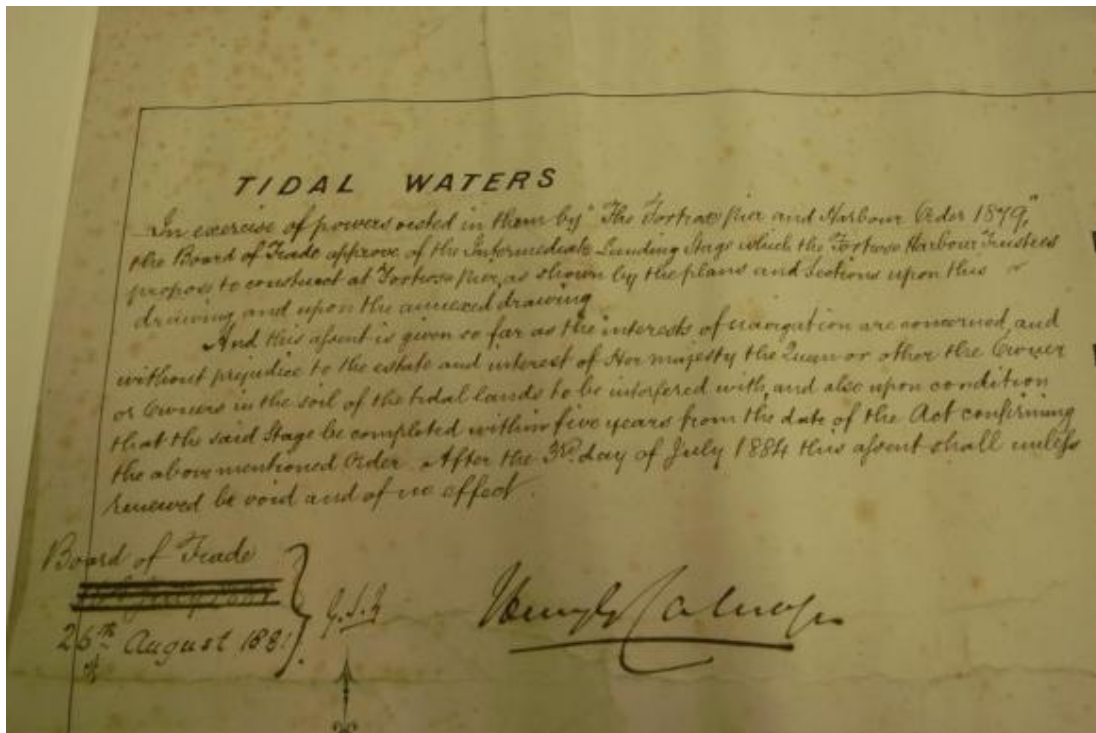 TIDAL WATERS
In exercise of powers vested in them by "The Fortrose Pier and Harbour Order 1879,"
the Board of Trade approve of the Intermediate Landing Stage which the Fortrose Harbour Trustees
propose to construct at Fortrose Pier, as shown by the plans and Sections upon this
drawing and upon the annexed drawing
And this assent is given so far as the interests of navigation are concerned, and
without prejudice to the estate and interest of Her Majesty the Queen or other the Owner
or Owners in the soil of the tidal lands to be interfered with, and also upon condition
that the said Stage be completed within five years from the date of the Act confirming
the above mentioned Order. After the 3rd day of July 1884 this assent shall unless
renewed be void and of no effect.
Board of Trade
26th August 1881